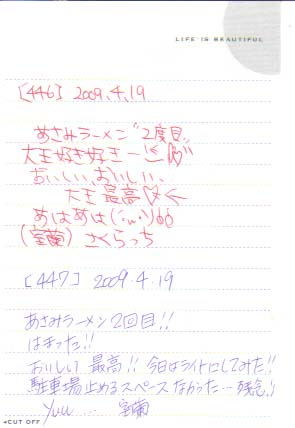 LIFE IS BEAUTIFUL
[446] 2009.4.19
あさみラーメン"2度目"
大王好き好きー
おいしい、おいしい、
大王最高♡
あはあは(´ω`)
(室蘭) さくらっち
[447] 2009.4.19
あさみラーメン2回目!!
はまった!!
おいしい 最高!! 今日はライトにしてみた!!
駐車場止めるスペースなかった…残念!!
Yuu… 室蘭
CUT OFF